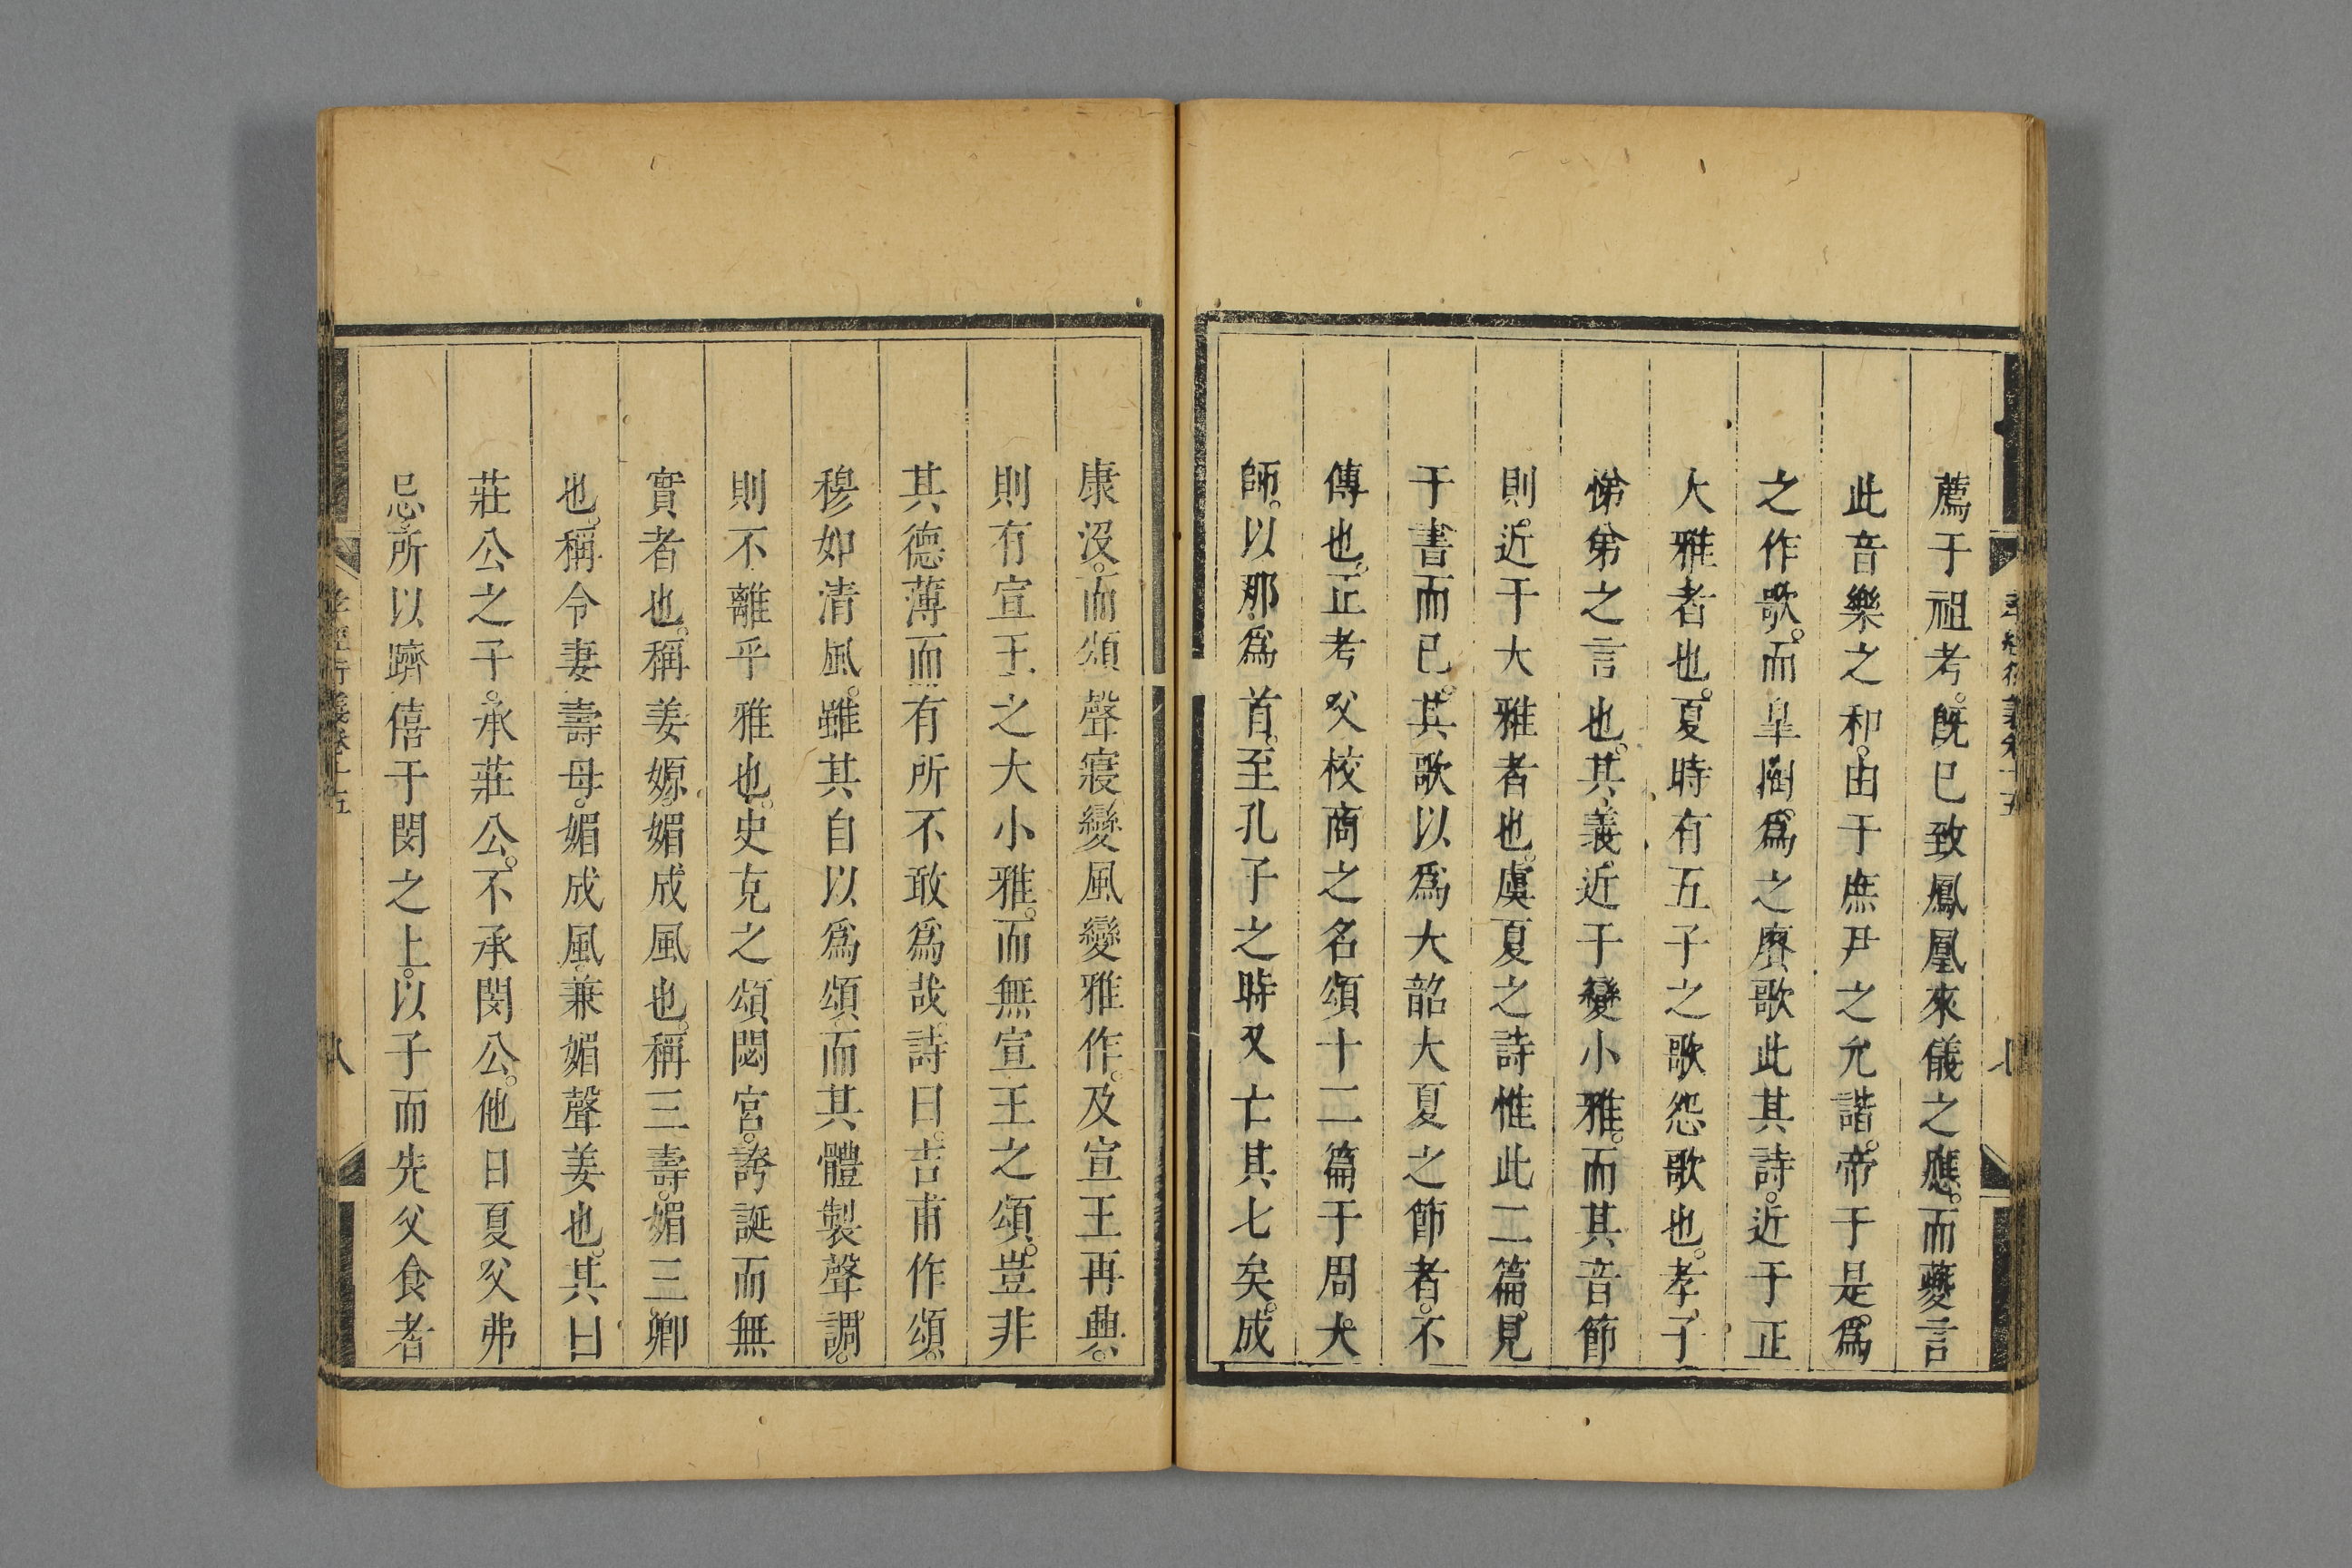 薦于祖考。旣已致鳳凰來儀之應。而夔言
此音樂之和。由于庶尹之允諧。帝于是。爲
之作歌。而皐陶。爲之賡歌此其詩。近于正
大雅者也。夏時有五子之歌怨歌也。孝子
悌弟之言也。其義。近于變小雅。而其音節
則。近于大雅者也。虞夏之詩惟此二篇。見
于書而已。其歌以爲大韶大夏之節者。不
傳也。正考父校商之名頌十二篇于周大
師。以那爲首。至孔子之時又亡其七矣。成
康沒。而頌聲寢變風變雅作。及宣王再興。
則有宣王之大小雅。而無宣王之頌。豈非
其德薄而有所不敢爲哉。詩曰。吉甫作頌。
穆如清風。雖其自以爲頌。而其體製聲調。
則不離乎雅也。史克之頌閟宮。誇誕而無
實者也。稱姜嫄。媚成風也。稱三壽。媚三卿
也。稱令妻壽母。媚成風。兼媚聲姜也。其曰
莊公之子。承莊公。不承閔公。他日夏父弗
忌。所以躋僖于閔之上。以子而先父食者
孝經衍義卷十五
八